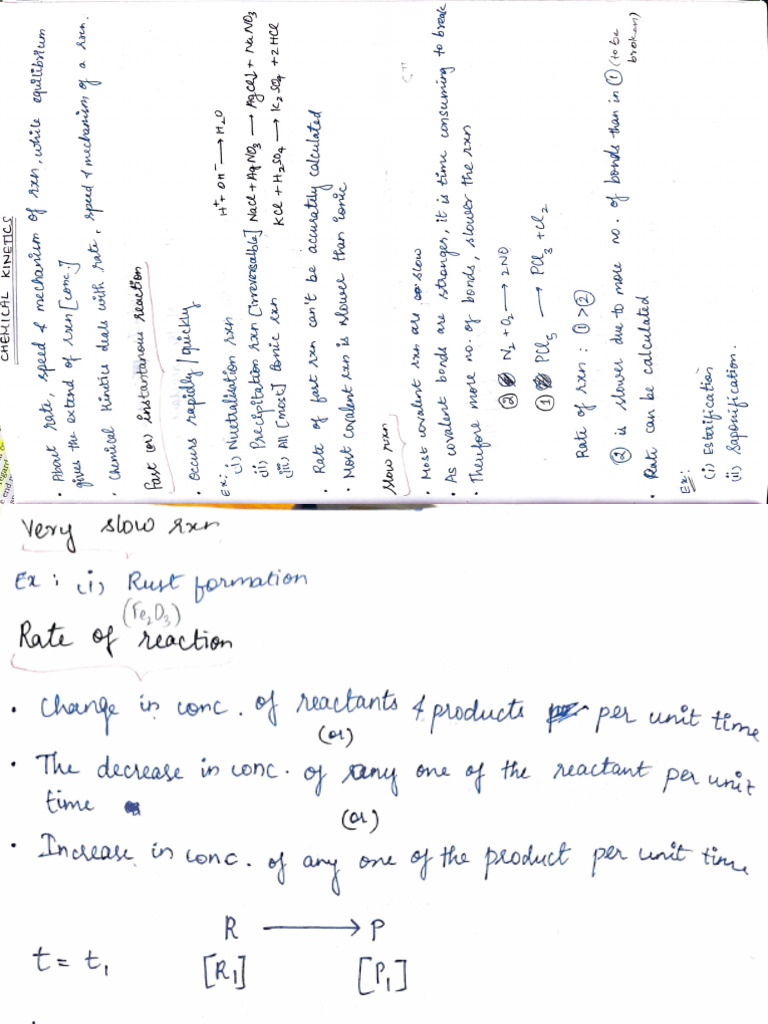 CHEMICAL KINETICS
• About rate, speed & mechanism of rxn, while equilibrium
gives the extend of rxn [conc.]
• Chemical Kinetics deals with rate, speed & mechanism of a rxn.
Fast (or) instantanous reaction
• Occurs rapidly/quickly
Ex:
(i) Nuetralisation rxn H⁺ + OH⁻ → H₂O
(ii) Precipitation rxn [irreversible] NaCl + AgNO₃ → AgCl↓ + NaNO₃
(iii) All [most] Ionic rxn KCl + H₂SO₄ → K₂SO₄ + 2HCl
• Rate of fast rxn can't be accurately calculated
• Most covalent rxn is slower than ionic
Slow rxn
• Most covalent rxn are slow
• As covalent bonds are stronger, it is time consuming to break
• Therefore more no. of bonds, slower the rxn
② N₂ + O₂ → 2NO
① PCl₅ → PCl₃ + Cl₂
Rate of rxn : ① > ②
② is slower due to more no. of bonds than in ① (to be
broken)
• Rate can be calculated
Ex:
(i) Estarification
(ii) Saponification.
Very slow rxn
Ex : (i) Rust formation
(Fe₂O₃)
Rate of reaction
• Change in conc. of reactants & products per unit time
(or)
• The decrease in conc. of any one of the reactant per unit
time
(or)
• Increase in conc. of any one of the product per unit time
R → P
t = t₁ [R₁] [P₁]